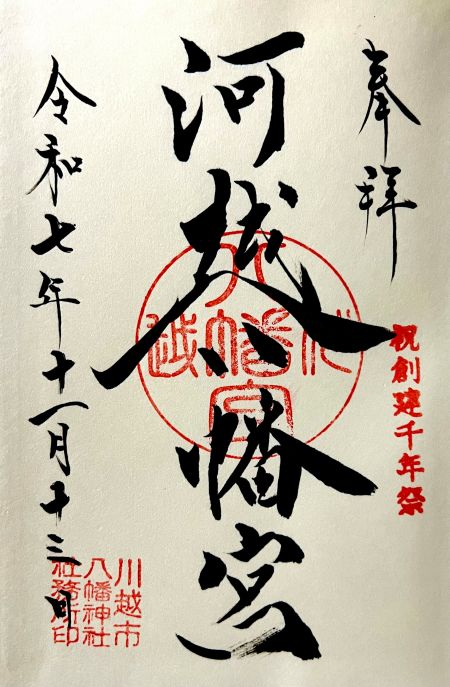 奉拝
祝創建千年祭
河越八幡宮
川越
八幡宮
令和七年十一月十三日
川越市
八幡神社
社務所印